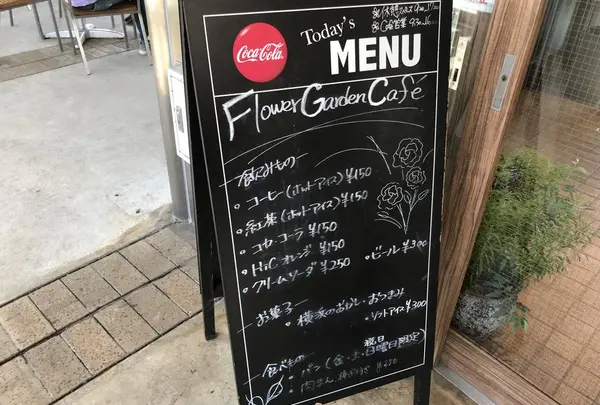 Coca-Cola
Today's
MENU
Flower Garden Café
飲みもの
コーヒー(ホットアイス)¥150
紅茶(ホットアイス)¥150
コカ・コーラ ¥150
HiC オレンジ ¥150
クリームソーダ ¥250
ビール ¥300
お菓子
横浜のおかし・おつまみ
ソフトアイス ¥300
食べもの
祝日
パン(金・土・日曜日限定)
肉まん